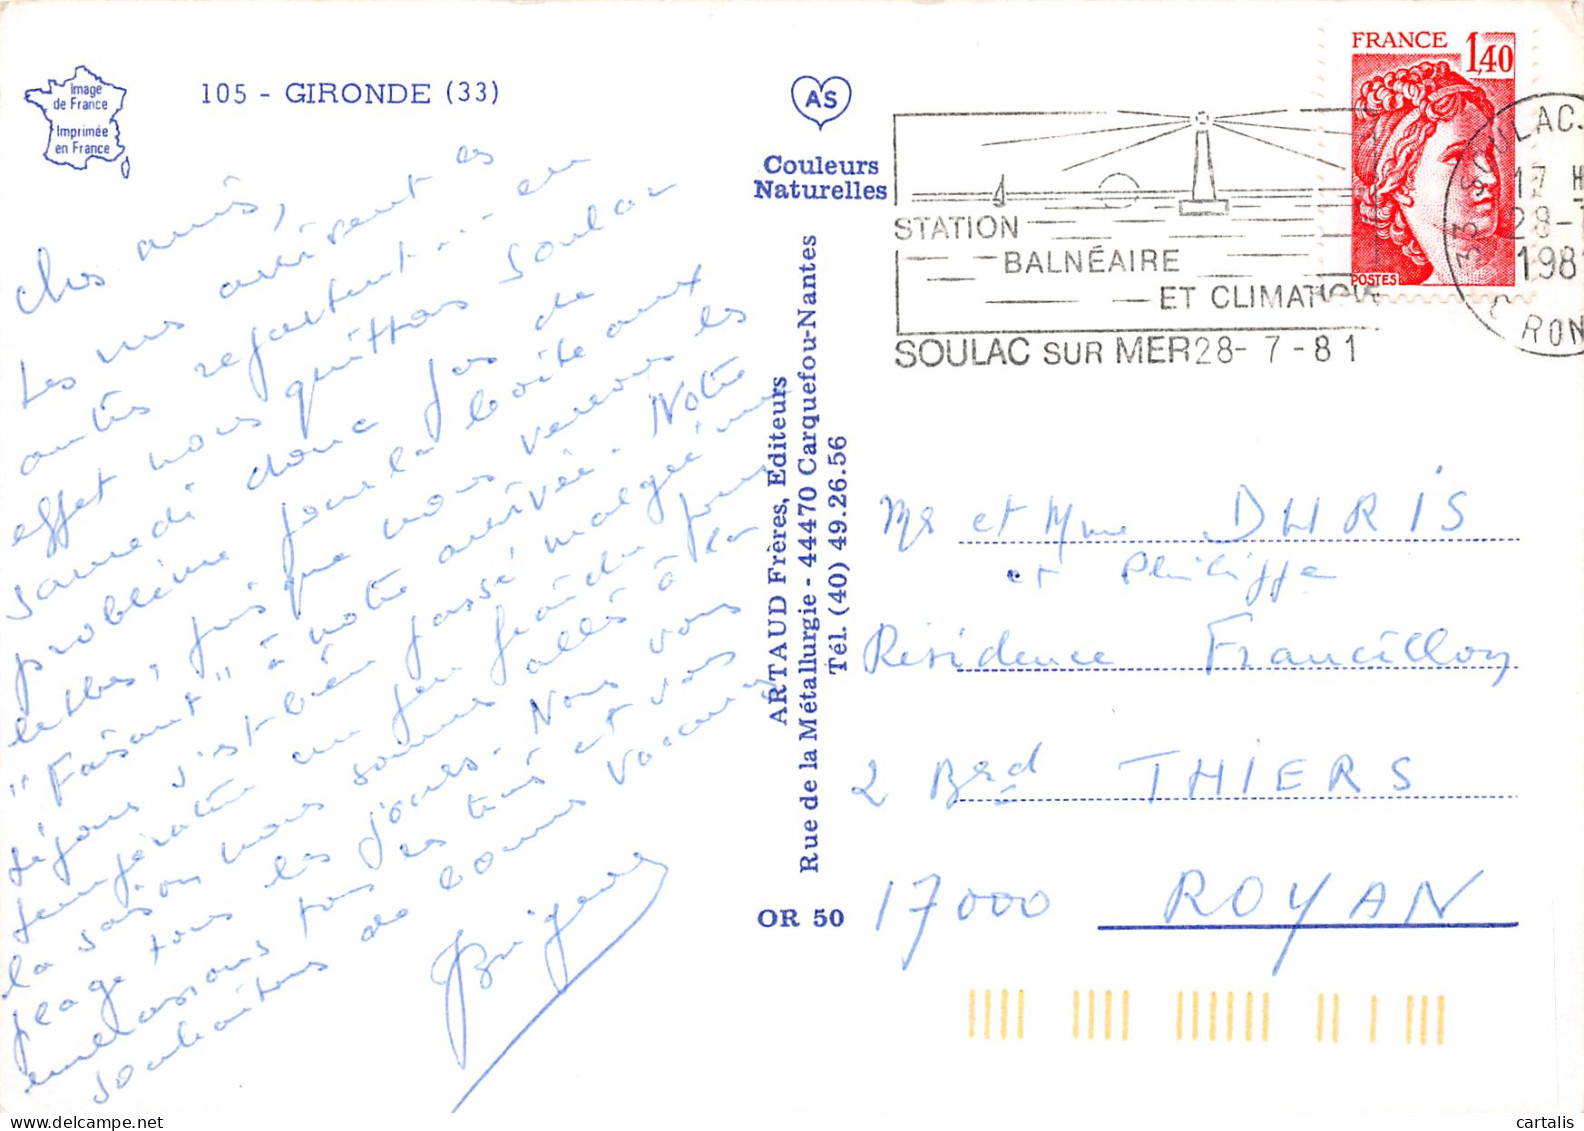 Image
de France
Imprimée
en France
105 - GIRONDE (33)
Chers amis,
Les uns arrivent es
autres repartent... en
effet nous quittons Soulac
samedi donc pas de
problème pour la boîte aux
lettres, puisque nous verrons les
"Faisant" à notre arrivée. Notre
séjour s'est bien passé, malgré une
température un peu froide pour
la saison nous sommes allés à la
plage tous les jours. Nous vous
embrassons tous les trois et vous
souhaitons de bonnes vacances
AS
Couleurs
Naturelles
ARTAUD Frères, Editeurs
Rue de la Métallurgie - 44470 Carquefou-Nantes
Tél. (40) 49.26.56
OR 50
STATION
BALNÉAIRE
ET CLIMATIQUE
SOULAC SUR MER 28-7-81
FRANCE 1,40
POSTES
33 SOULAC-S
17 H
28-7
1981
GIRON
Mr et Mme DHRIS
et Philippe
Résidence Francillon
2 Brd THIERS
17000 ROYAN
cartalis